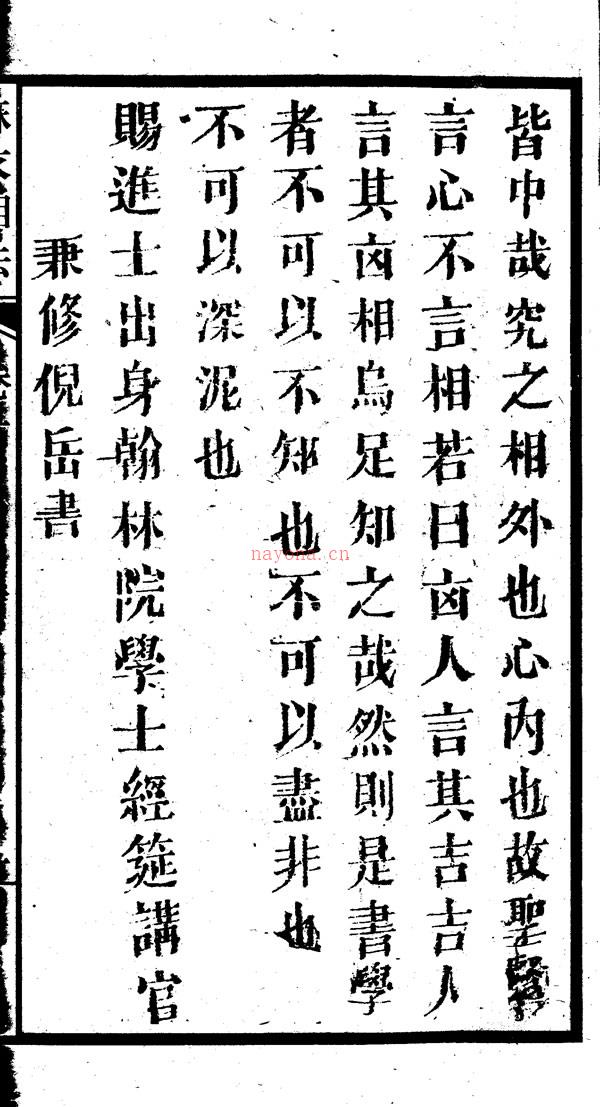 皆中哉究之相外也心内也故聖賢
言心不言相若曰㐫人言其吉吉人
言其㐫相烏足知之哉然則是書學
者不可以不知也不可以盡非也
不可以深泥也
賜進士出身翰林院學士經筵講官
兼修倪岳書
nayona.cn